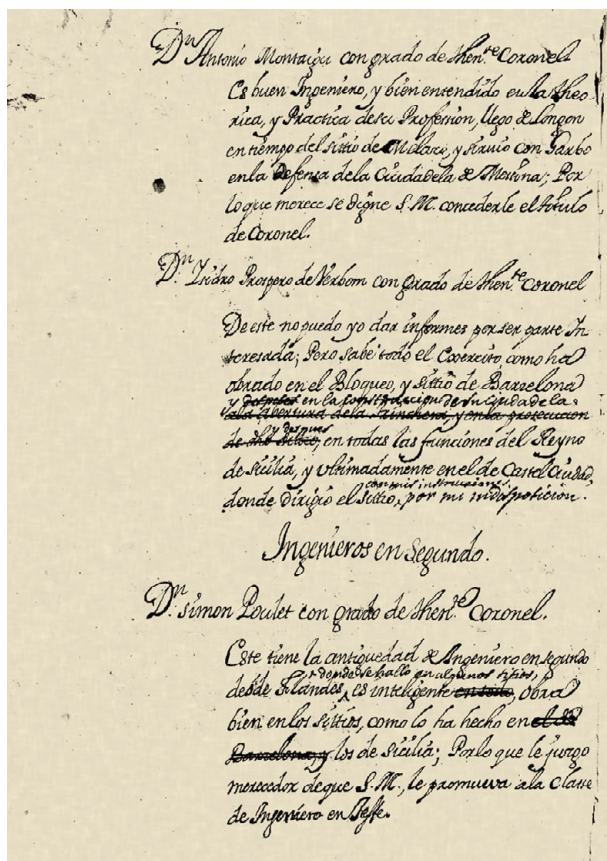 Dn Antonio Montaigu con grado de Thente Coronel
Es buen Ingeniero, y bien entendido en la theo-
rica, y Practica de su Profession, llego de Longon
en tiempo del sittio de Milazo, y siruio con Garbo
en la defensa de la Ciudadela de Messina; Por
lo que merece se digne S.M. concederle el titulo
de Coronel.
Dn. Isidro Prospero de Verbom con grado de Thente Coronel
De este no puedo yo dar informes por ser parte In-
teresada; Pero sabe todo el Exercito como ha
obrado en el Bloqueo, y sittio de Barcelona
y despues en la construccion de su Ciudadela
a la abertura de la trinchera, y en la prosecucion
y despues
de dho sitio, en todas las funciones del Reyno
de Sicilia, y ultimadamente en el de Castel Ciudad,
con mis instrucciones
donde dirigio el sittio, por mi indisposicion.
Ingenieros en Segundo.
Dn. Simon Poulet con grado de Thente Coronel.
Este tiene la antiguedad de Ingeniero en segundo
donde se hallo en algunos sitios,
desde Flandes, es inteligente en todo, obra
bien en los sittios, como lo ha hecho en el de
Barcelona, y los de Sicilia; Por lo que le juzgo
merecedor de que S.M., le promueva a la Classe
de Ingeniero en Jeffe.